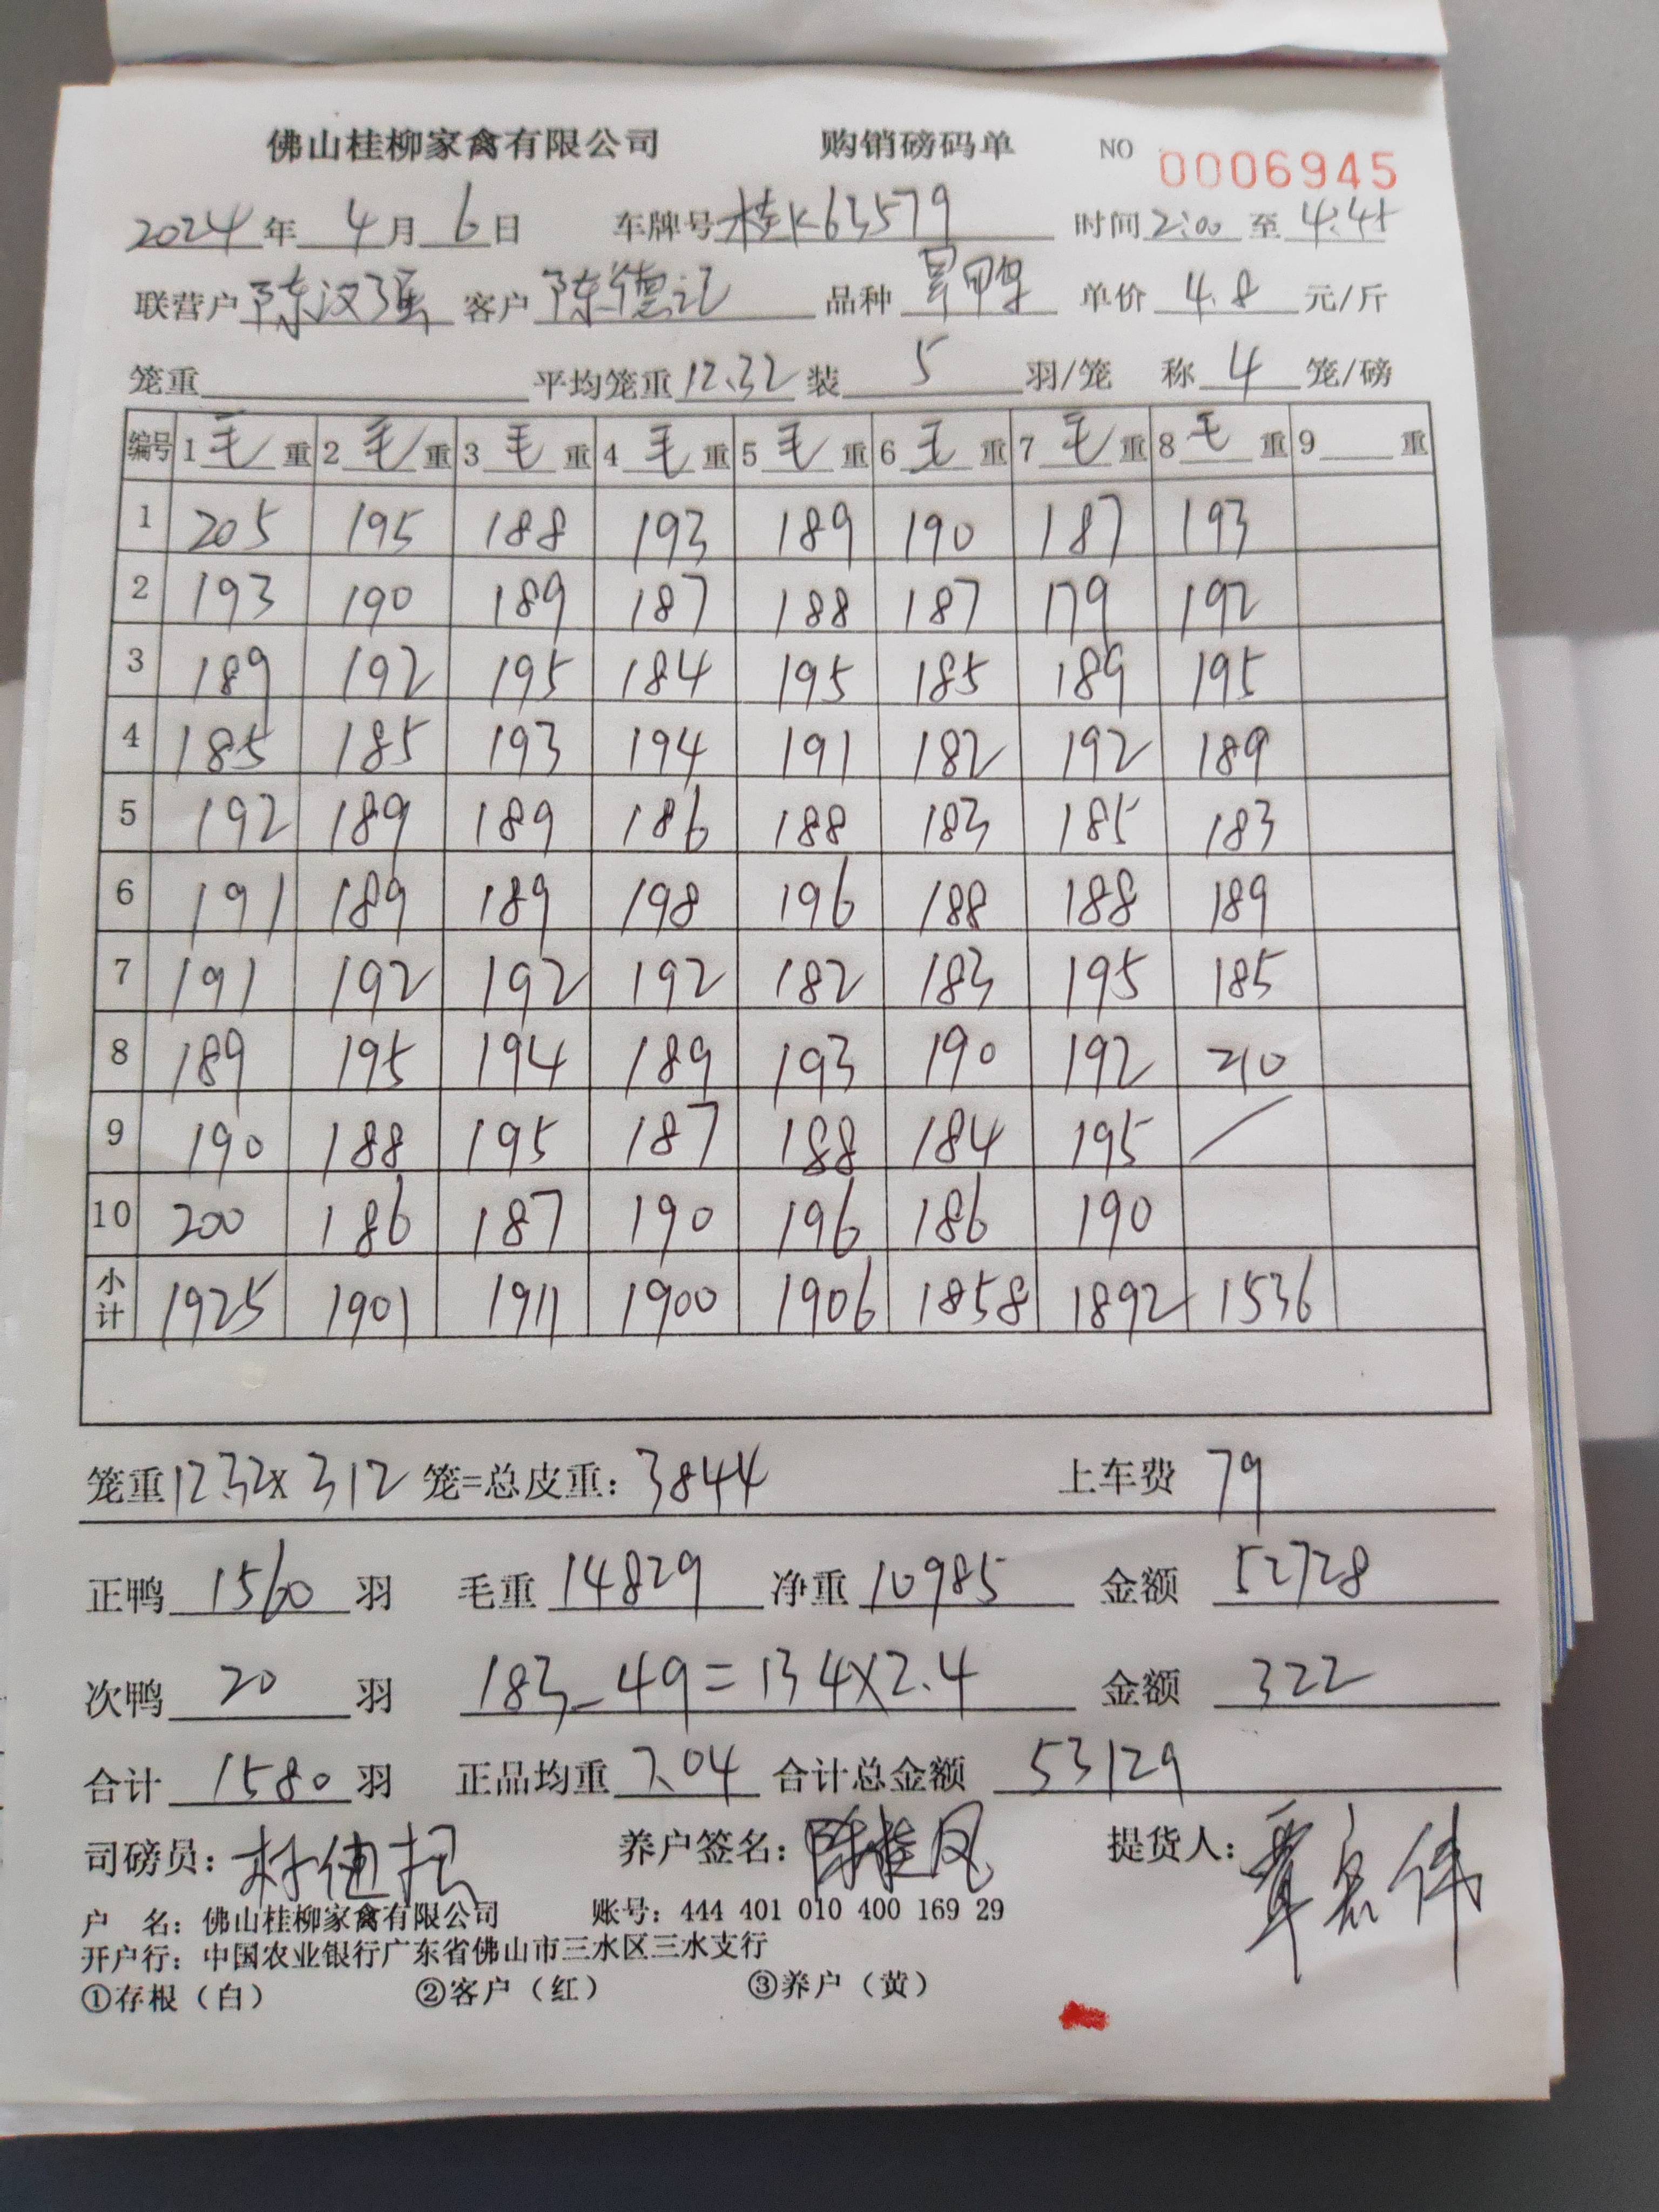 佛山桂柳家禽有限公司 购销磅码单 NO 0006945
2024年 4月 6日 车牌号 桂K63579 时间 2:00 至 4:45
联营户 陈汉强 客户 陈德记 品种 单价 4.8 元/斤
笼重 平均笼重 12.32 装 5 羽/笼 称 4 笼/磅
编号 1毛重 2毛重 3毛重 4毛重 5毛重 6毛重 7毛重 8毛重 9 重
1 205 195 188 193 189 190 187 193
2 193 190 189 187 188 187 179 192
3 189 192 195 184 195 185 189 195
4 185 185 193 194 191 182 192 189
5 192 189 189 186 188 183 185 183
6 191 189 189 198 196 188 188 189
7 191 192 192 192 182 183 195 185
8 189 195 194 189 193 190 192 210
9 190 188 195 187 188 184 195 /
10 200 186 187 190 196 186 190
小计 1925 1901 1911 1900 1906 1858 1892 1536
笼重12.32x 312 笼=总皮重: 3844 上车费 79
正鸭 1560 羽 毛重 14829 净重 10985 金额 52728
次鸭 20 羽 183-49=134X2.4 金额 322
合计 1580 羽 正品均重 7.04 合计总金额 53129
司磅员: 养户签名: 提货人:
户 名: 佛山桂柳家禽有限公司 账号: 444 401 010 400 169 29
开户行: 中国农业银行广东省佛山市三水区三水支行
①存根（白） ②客户（红） ③养户（黄）